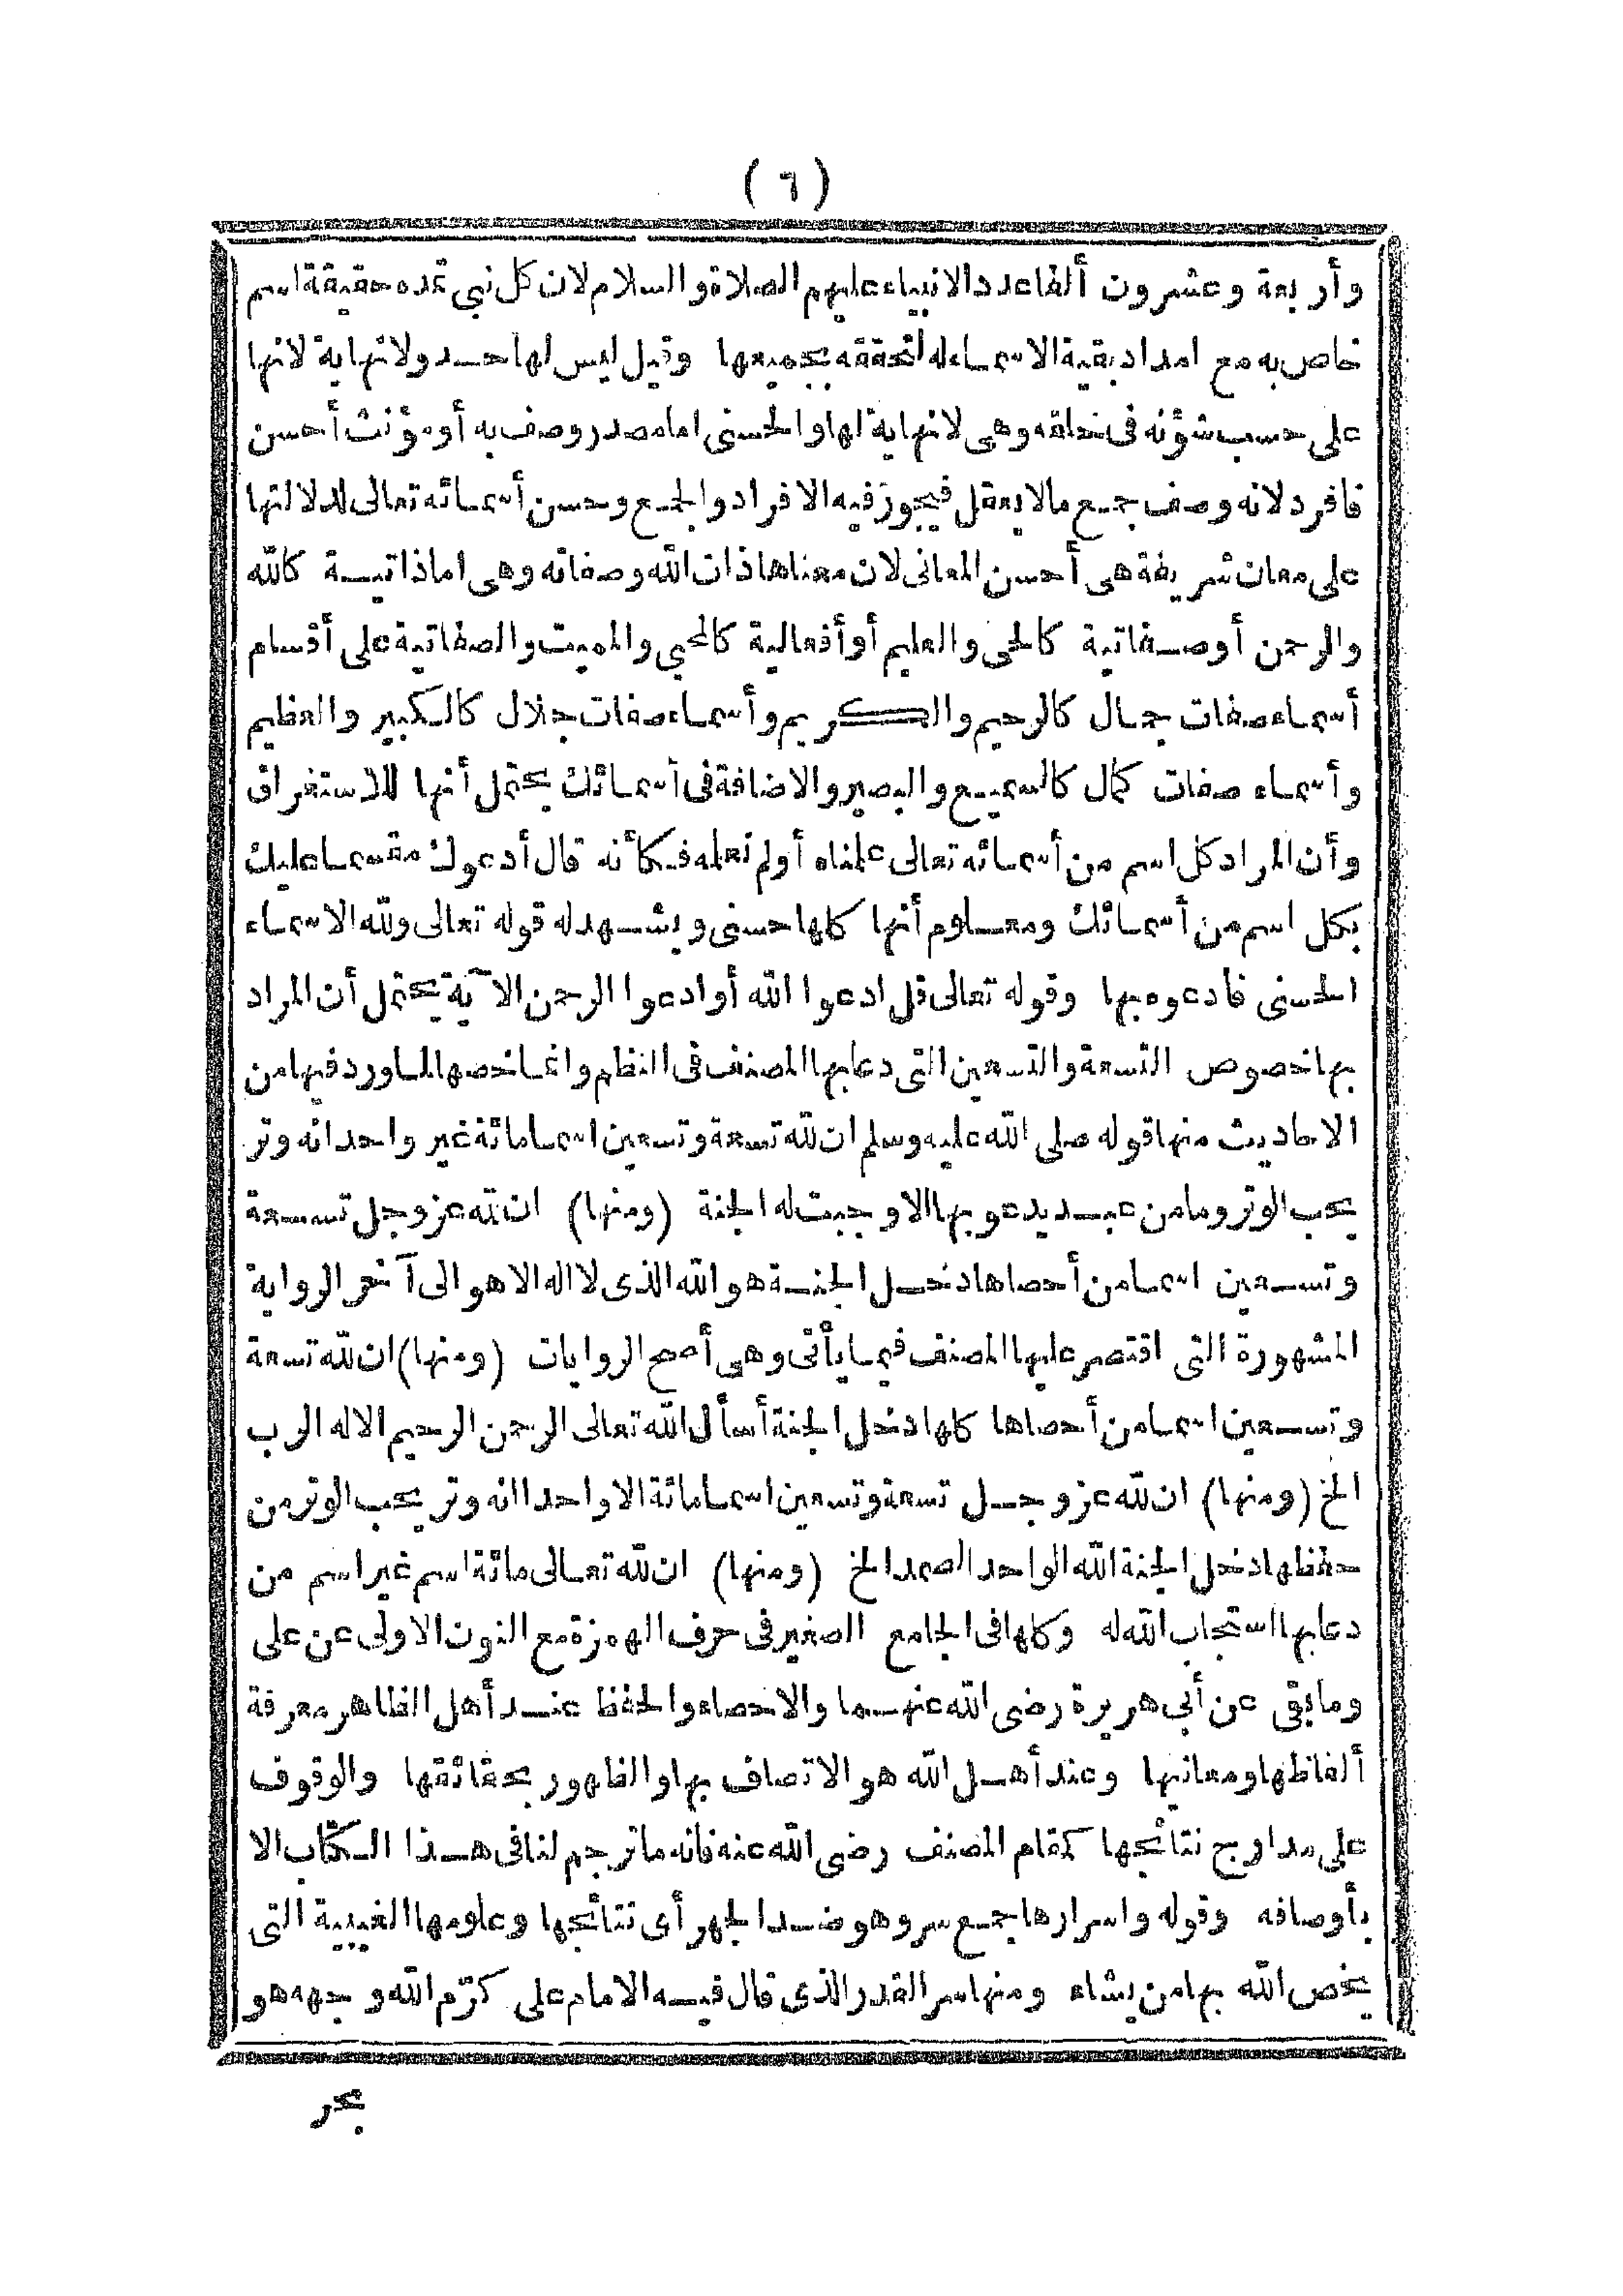 (٦)
وأربعة وعشرون ألفا عدد الانبياء عليهم الصلاة والسلام لان كل نبي تمده حقيقة اسم
خاص به مع امداد بقية الاسماء له لتحققه بجميعها وقيل ليس لها حد ولا نهاية لانها
على حسب شؤنه فى خلقه وهى لا نهاية لها والحسنى اما مصدر وصف به أو مؤنث أحسن
فافرد لانه وصف جمع مالا يعقل فيجوز فيه الافراد والجمع وحسن أسمائه تعالى لدلالتها
على معان شريفة هى أحسن المعانى لان معناها ذات الله وصفاته وهى اما ذاتية كالله
والرحمن أو صفاتية كالحى والعليم أو أفعالية كالمحيي والمميت والصفاتية على أقسام
أسماء صفات جمال كالرحيم والكريم وأسماء صفات جلال كالكبير والعظيم
وأسماء صفات كمال كالسميع والبصير والاضافة فى أسمائك يحتمل أنها للاستغراق
وأن المراد كل اسم من أسمائه تعالى علمناه أولم نعلمه فكأنه قال أدعوك مقسما عليك
بكل اسم من أسمائك ومعلوم أنها كلها حسنى ويشهد له قوله تعالى ولله الاسماء
الحسنى فادعوه بها وقوله تعالى قل ادعوا الله أو ادعوا الرحمن الآية يحتمل أن المراد
بها خصوص التسعة والتسعين التى دعا بها المصنف فى النظم وانما خصها لما ورد فيها من
الاحاديث منها قوله صلى الله عليه وسلم ان لله تسعة وتسعين اسما مائة غير واحد انه وتر
يحب الوتر وما من عبد يدعو بها الا وجبت له الجنة (ومنها) ان لله عز وجل تسعة
وتسعين اسما من أحصاها دخل الجنة هو الله الذى لا اله الا هو الى آخر الرواية
المشهورة التى اقتصر عليها المصنف فيما يأتى وهى أصح الروايات (ومنها) ان لله تسعة
وتسعين اسما من أحصاها كلها دخل الجنة أسأل الله تعالى الرحمن الرحيم الاله الرب
الخ (ومنها) ان لله عز وجل تسعة وتسعين اسما مائة الا واحدا انه وتر يحب الوتر من
حفظها دخل الجنة الله الواحد الصمد الخ (ومنها) ان لله تعالى مائة اسم غير اسم من
دعا بها استجاب الله له وكلها فى الجامع الصغير فى حرف الهمزة مع النون الاولى عن على
وما بقى عن أبي هريرة رضى الله عنهما والاحصاء والحفظ عند أهل الظاهر معرفة
ألفاظها ومعانيها وعند أهل الله هو الاتصاف بها والظهور بحقائقها والوقوف
على مدارج نتائجها كمقام المصنف رضى الله عنه فانه ما ترجم لنا فى هذا الكتاب الا
بأوصافه وقوله واسرارها جمع سر وهو ضد الجهر أى نتائجها وعلومها الغيبية التى
يخص الله بها من يشاء ومنها سر القدر الذى قال فيه الامام على كرّم الله وجهه هو
بحر